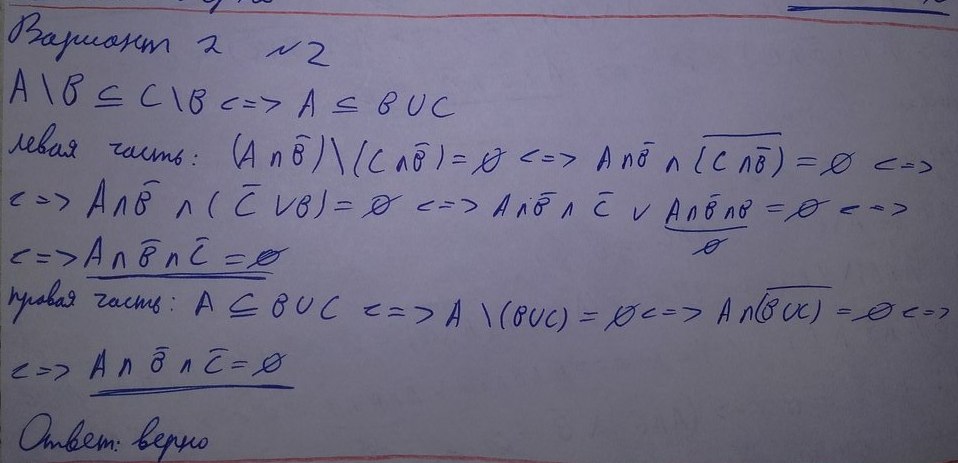 Вариант 2 №2
A\B ⊆ C\B <=> A ⊆ B∪C
левая часть: (A∩B̄)\(C∩B̄)=∅ <=> A∩B̄∩(C∩B̄)‾=∅ <=>
<=> A∩B̄∩(C̄∨B)=∅ <=> A∩B̄∩C̄ ∨ A∩B̄∩B=∅ <=>
∅
<=> A∩B̄∩C̄=∅
правая часть: A ⊆ B∪C <=> A\(B∪C)=∅ <=> A∩(B∪C)‾=∅ <=>
<=> A∩B̄∩C̄=∅
Ответ: верно